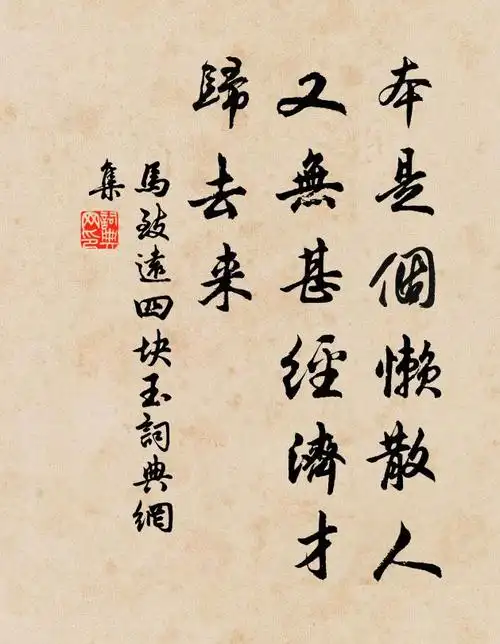 本是個懶散人
又無甚經濟才
歸去来
馬致遠四块玉詞典網
集
詞典網印